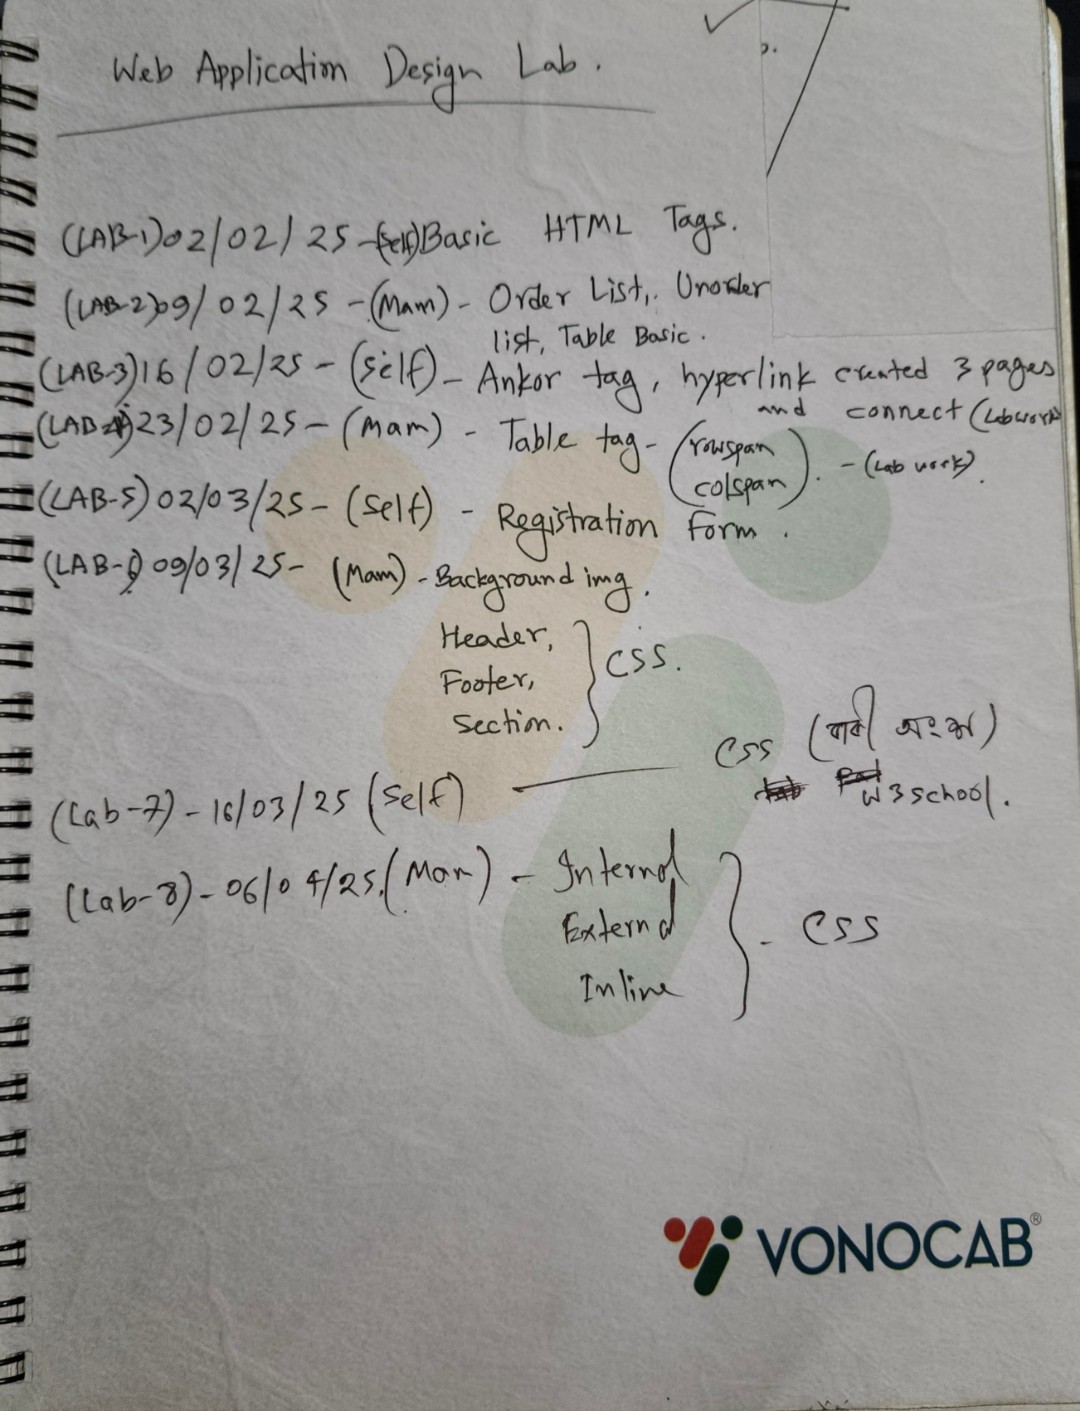 Web Application Design Lab.
(LAB-1)02/02/25-(self)Basic HTML Tags.
(LAB-2)09/02/25-(Mam)- Order List, Unorder
list, Table Basic.
(LAB-3)16/02/25-(self)- Ankor tag, hyperlink created 3 pages
and connect (Labwork)
(LAB-4)23/02/25-(Mam) - Table tag-(rowspan
colspan). -(Lab work).
(LAB-5)02/03/25-(self) - Registration Form.
(LAB-6)09/03/25-(Mam)-Background img.
Header,
Footer, } CSS.
Section.
CSS (বাকী অংশ)
(Lab-7)-16/03/25(self) W3school.
(Lab-8)-06/04/25.(Mam)- Internal
External }- CSS
Inline
VONOCAB®